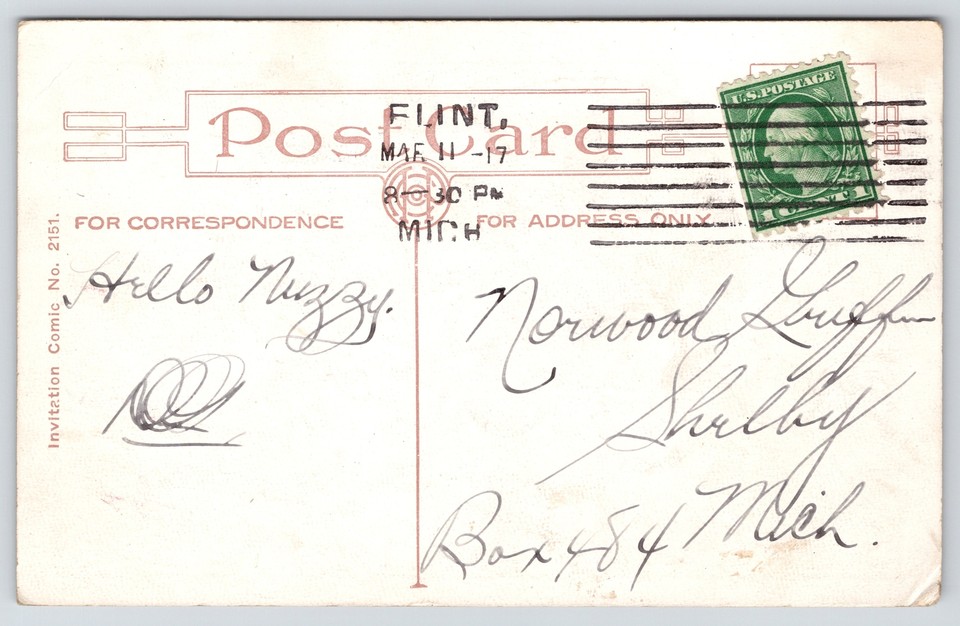 Post Card
FLINT,
MAR 11 -17
8-30 PM
MICH
U.S. POSTAGE
1 CENT 1
FOR CORRESPONDENCE
FOR ADDRESS ONLY
Invitation Comic No. 2151.
Hello Nuzzy.
Norwood
Shelby
Box 484 Mich.